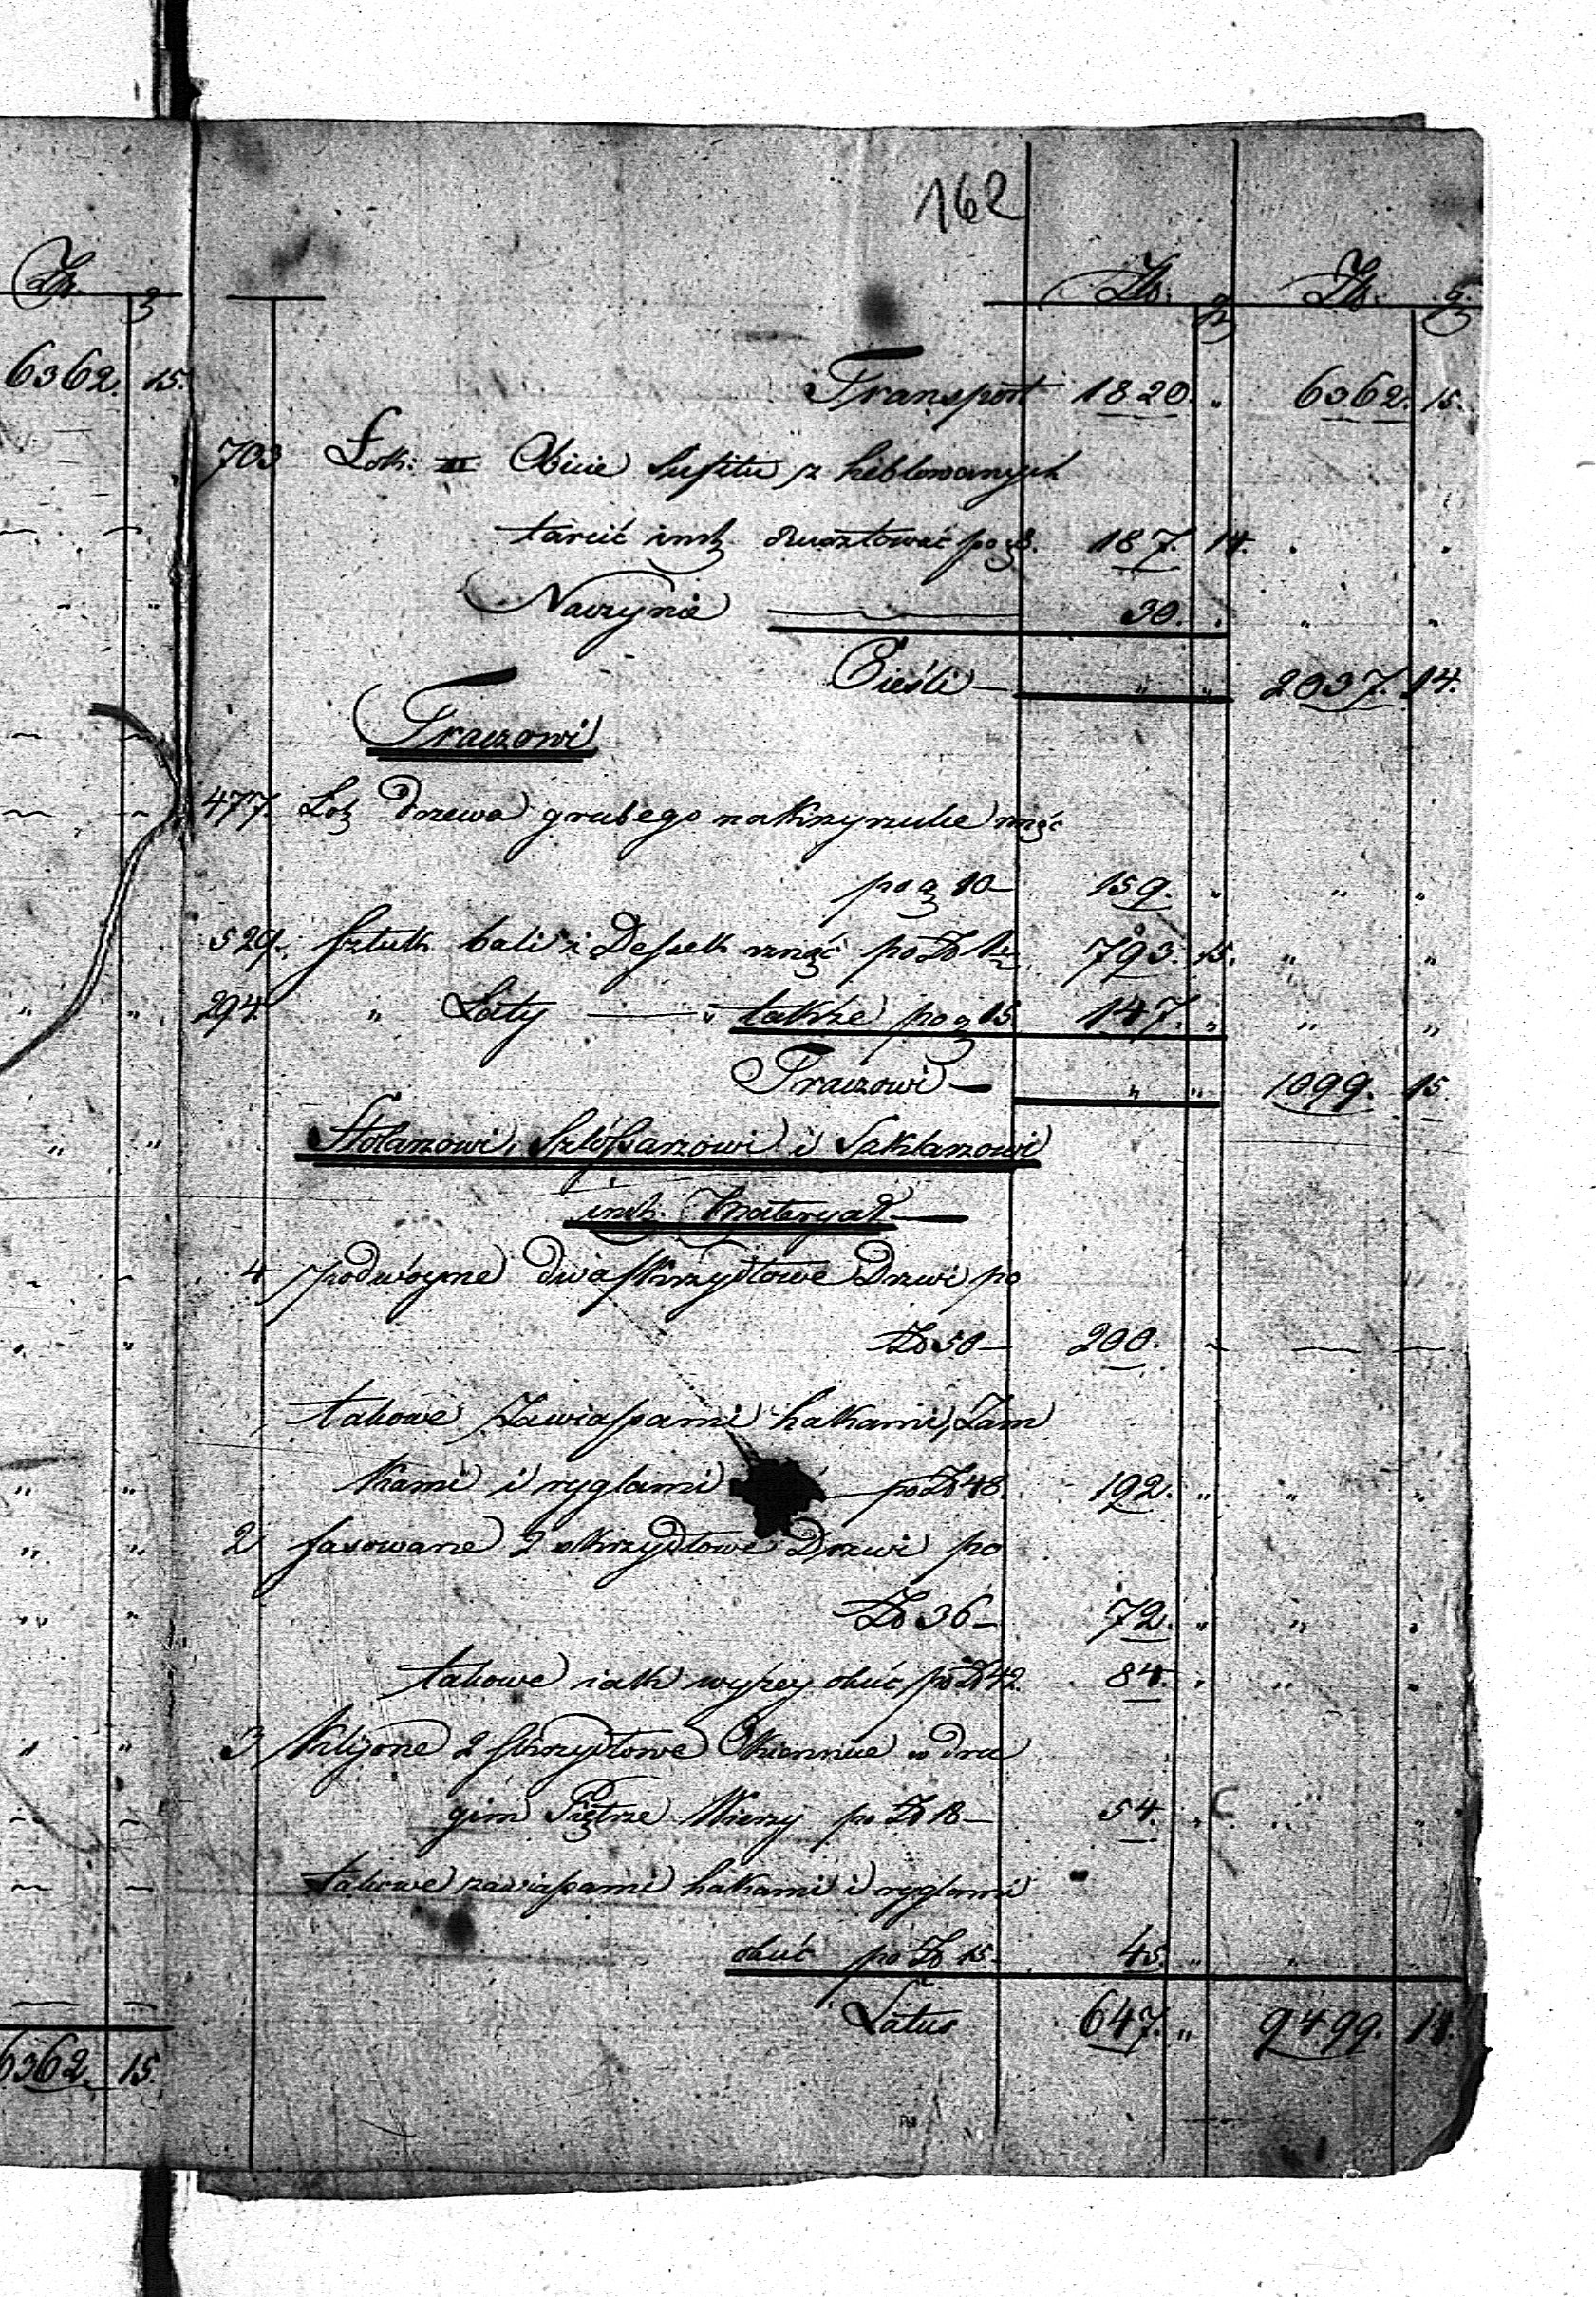 162
Zł. g Zł. gr. Zł. g.
6362. 15. Transport 1820. „ 6362. 15.
703 Łok: □ Obicie sufitu z heblowanych
tarcic inst po g 8. 187. 14. „ „
Naczynia 30. „ „ „
Cieśli — „ „ 2037. 14.
Traczowi
477. Łok drzewa grubego na Krzyzulce rznąć
po g 10 — 159. „ „ „
529. Sztuk bali i Desek rznąć po Zł 1½ 793. 15. „ „
294 „ Łaty — „ takze po g 15. 147. „ „ „
Traczowi — „ „ 1099. 15.
Stolarzowi, Szlossarzowi i Szklarzowi
inst. Materyał —
4 podwóyne dwaskrzydłowe Drzwi po
Zł 50 — 200. — — —
takowe Zawiasami hakami, Zam
kami i ryglami po Zł 48. 192. „ „ „
2 fasowane 2 skrzydłowe Drzwi po
Zł 36 — 72. „ „ „
takowe iak wyżey okuć po Zł 42. 84. „ „ „
3 Klijone 2 skrzydłowe Okiennice w dru
gim Piętrze Wiezy po Zł 18 — 54. „ „ „
takowe zawiasami hakami i ryglami
okuć po Zł 15. 45. „ „ „
Latus 647. „ 9499. 14.
6362. 15.